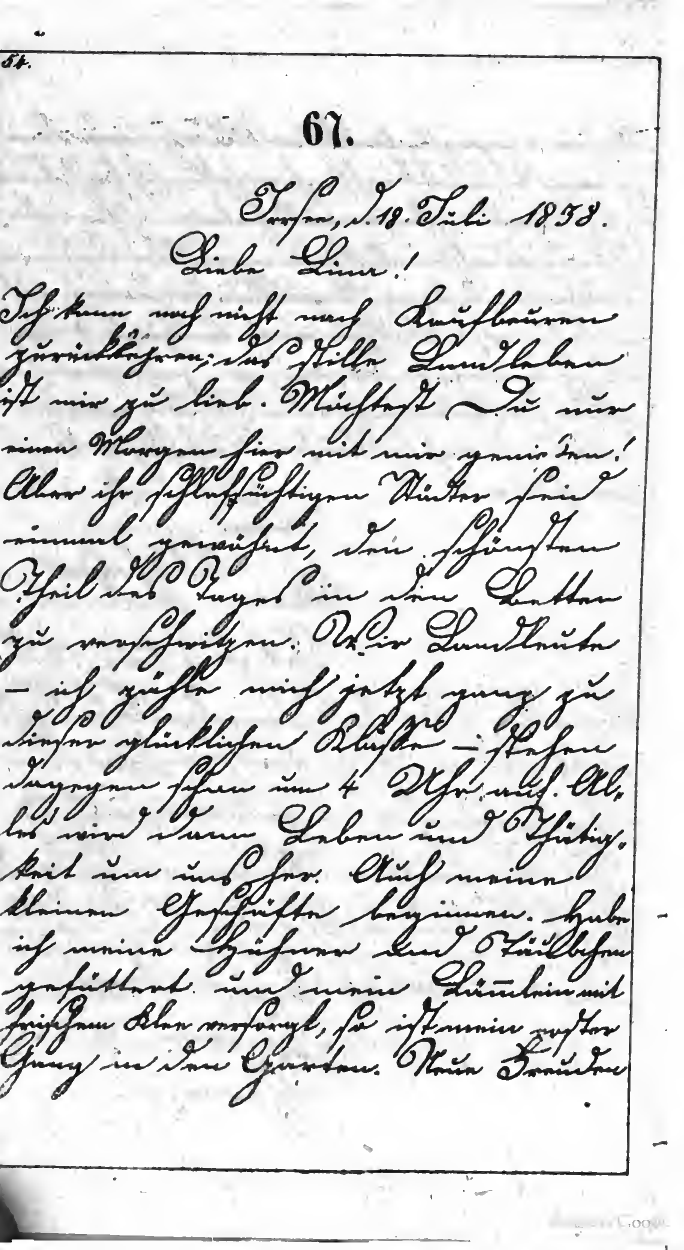 54.
67.
Irrsee, d. 18. Juli 1838.
Liebe Lina!
Ich kann noch nicht nach Kaufbeuren
zurückkehren; das stille Landleben
ist mir zu lieb. Möchtest Du nur
einen Morgen hier mit mir genießen!
Aber ihr schlafsüchtigen Städter seid
einmal gewöhnt, den schönsten
Theil des Tages in den Betten
zu verschwitzen. Wir Landleute
— ich zähle mich jetzt ganz zu
dieser glücklichen Klasse — stehen
dagegen schon um 4 Uhr auf. Al-
les wird dann Leben und Thätig-
keit um uns her. Auch meine
kleinen Geschäfte beginnen. Habe
ich meine Hühner und Täubchen
gefüttert und mein Läm̅lein mit
frischem Klee versorgt, so ist mein erster
Gang in den Garten. Neue Freuden